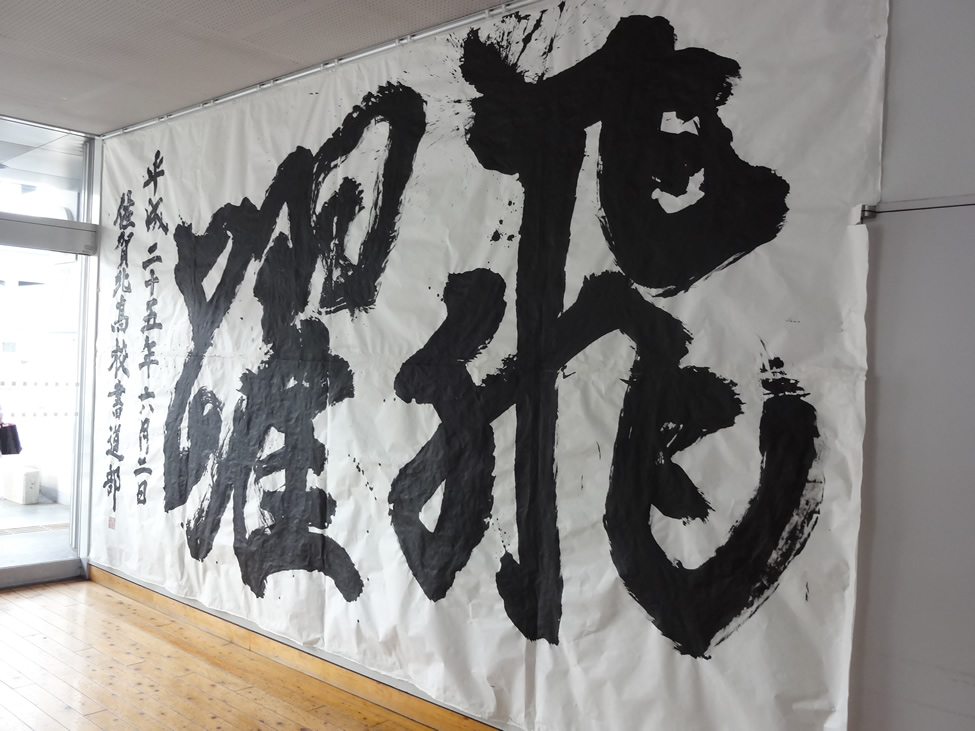 飛躍
平成二十五年六月二日
佐賀北高校書道部